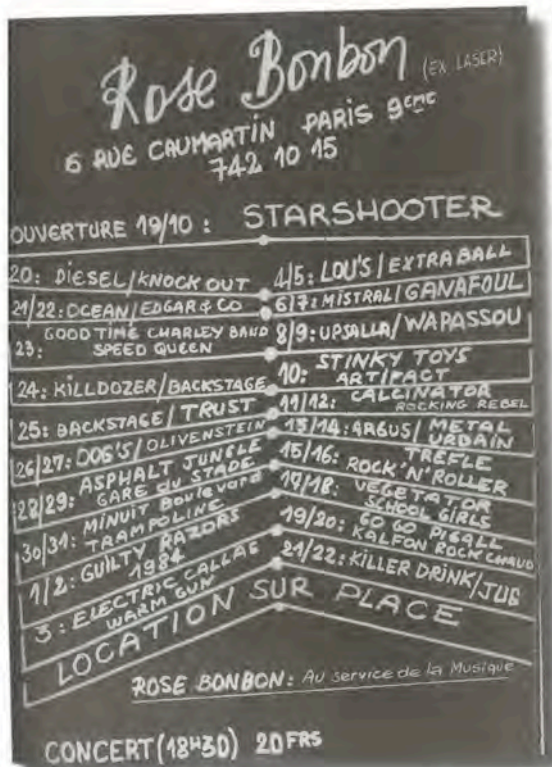 Rose Bonbon (EX LASER)
6 RUE CAUMARTIN PARIS 9eme
742 10 15
OUVERTURE 19/10 : STARSHOOTER
20: DIESEL/KNOCK OUT
21/22: OCEAN/EDGAR & CO
23: GOOD TIME CHARLEY BAND
SPEED QUEEN
24: KILLDOZER/BACKSTAGE
25: BACKSTAGE/TRUST
26/27: DOG'S/OLIVENSTEIN
28/29: ASPHALT JUNGLE
GARE du STADE
30/31: MINUIT Boulevard
TRAMPOLINE
1/2: GUILTY RAZORS
1984
3: ELECTRIC CALLAS
WARM GUN
4/5: LOU'S/EXTRABALL
6/7: MISTRAL/GANAFOUL
8/9: UPSALLA/WAPASSOU
10: STINKY TOYS
ARTIFACT
11/12: CALCINATOR
ROCKING REBEL
13/14: ARGUS/METAL
URBAIN
15/16: TREFLE
ROCK'N'ROLLER
17/18: VEGETATOR
SCHOOL GIRLS
19/20: GO GO PIGALL
KALFON ROCK CHAUD
21/22: KILLER DRINK/JUG
LOCATION SUR PLACE
ROSE BONBON: Au service de la Musique
CONCERT (18H30) 20 FRS